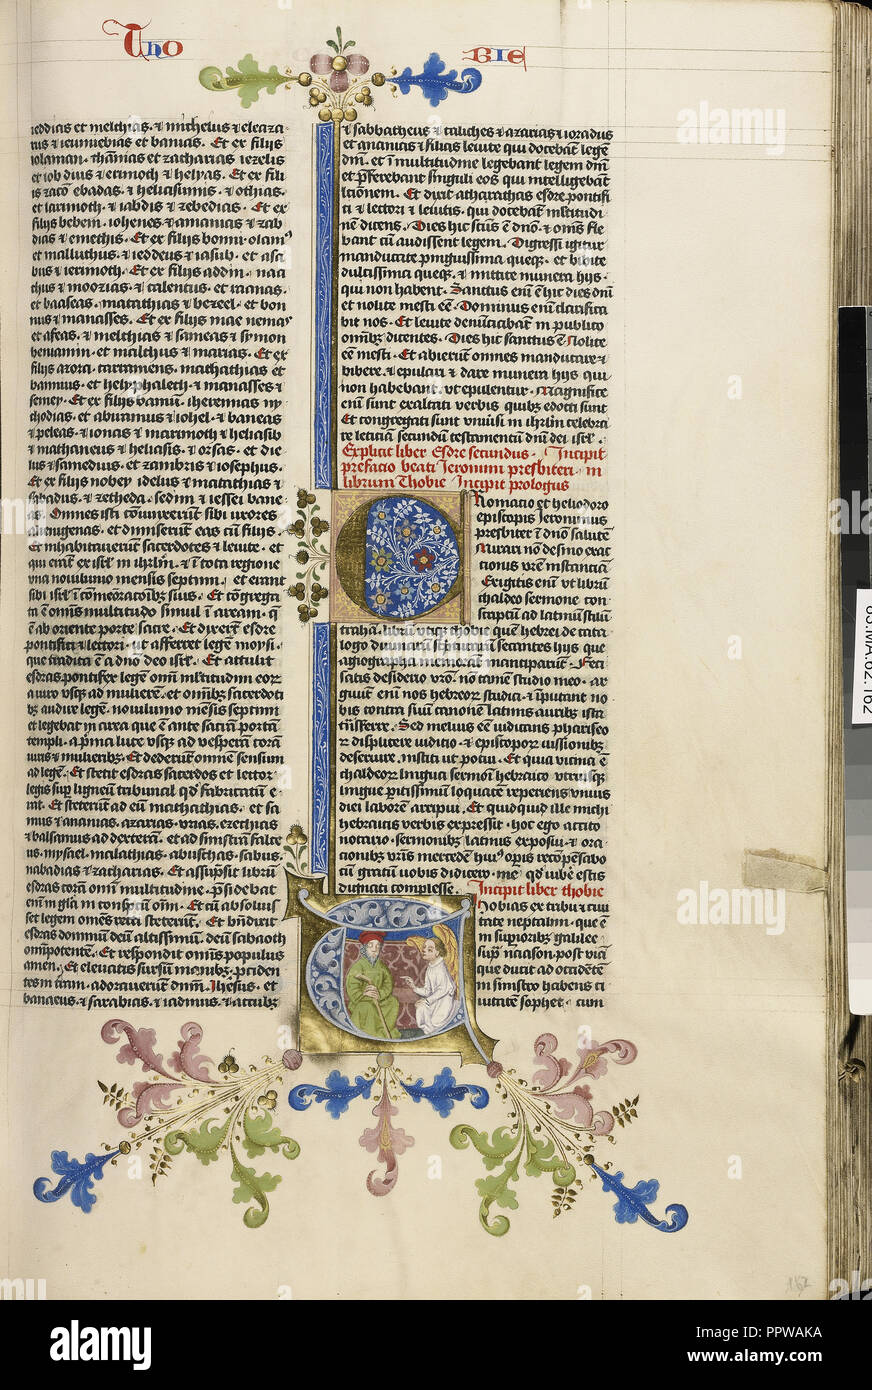 Tho
bie
ieddias et melchias · et michelus et eleaza
rus et iemnebias et banias. Et ex filijs
iolaman · chamas et zacharias iezrelis
et iob dius et erimoth et helyas. Et ex fili
is zaco ebadas et heliasimus et othias ·
et larimoth et iabdis et zebedias. Et ex
filijs bebem · iohenes et amanias et zab
dias et emethis. Et ex filijs bonni · olam9
et malluthus et ieddeus et iasub · et asa
bus et ierimoth. Et ex filijs addin · naa
thus et moozias et calentus · et raanas ·
et baaseas · matathias et bezeel · et bon
nus et manasses. Et ex filijs
et afeas · et melchias et sameas et symon
beniamin · et malchus et marias. Et ex
filijs azora · carianens · mathathias et
bannus · et helyphalech et manasses et
semey · Et ex filijs banim · iheremias my
thodias · et abiramus et iohel · et baneas
et peleas · et ionas et marimoth et heliasib
et mathaneus et heliasis · et orsas · et die
lus et samedius · et zambris et iosephus.
Et ex filijs nobey idelus et matathias et
sabadus · et zetheda · sedmi et iessei bane
as. Omnes isti coniunxerunt sibi uxores
alienigenas · et dimiserunt eas cum filijs.
Et inhabitauerunt sacerdotes et leuite · et
qui erant ex isrl in ihrlm · et in tota regione
vna nouilunio mensis septimi · et erant
filij isrl in comemoracionibus suis. Et congrega
ta est omnis multitudo simul in aream · que
est ab oriente porte sacre. Et dixerunt esdre
pontifici et lectori · ut afferret legem moysi ·
que tradita est a domino deo isrl. Et attulit
esdras pontifex legem omni multitudini eorum
a uiro usque ad mulierem · et omnibus sacerdoti
bus audire legem · nouilunio mensis septimi
et legebat in area que est ante sacram portam
templi · a prima luce usque ad vesperam coram
uiris et mulieribus. Et dederunt omnes sensum
ad legem. Et stetit esdras sacerdos et lector
legis super ligneum tribunal quod fabricatum e
rat. Et steterunt ad eum mathathias · et sa
mus et ananias · azarias · vrias · ezechias
et balsamus ad dexteram · et ad sinistram falce
us · mysael · malathias · abusthas · sabus ·
nabadias et zacharias. Et assumpsit librum
esdras coram omni multitudine · presidebat
enim in gloria in conspectu omnium. Et cum absoluis
set legem omnes recti steterunt. Et benedixit
esdras dominum deum altissimum · deum sabaoth
omnipotentem. Et respondit omnis populus
amen. Et eleuatis sursum manibus procidentes
in terram · adorauerunt dominum. Ihesus · et
banaeus et sarabias et iadmus et accubus
et sabbatheus et caliches et azarias et ioradus
et ananias et filias leuite qui docebant legem
domini · et in multitudine legebant legem domini
et preferebant singuli eos qui intelligebant
lectionem. Et dixit atharathas esdre pontifi
ci et lectori et leuitis · qui docebant multitudi
nem dicens. Dies hic sanctus est domino · et omnes fle
bant cum audissent legem. Digressi igitur
manducate pinguissima queque · et bibite
dulcissima queque · et mittite munera hijs ·
qui non habent. Sanctus enim est hic dies domini
et nolite mesti esse. Dominus enim clarifica
bit nos. Et leuite denunciabant in publico
omnibus dicentes. Dies hic sanctus est · Nolite
esse mesti. Et abierunt omnes manducare et
bibere et epulari et dare munera hijs qui
non habebant · vt epulentur. Magnifice
enim sunt exaltati verbis quibus edocti sunt
Et congregati sunt vniuersi in ihrlm celebra
re leticiam secundum testamentum domini dei isrl.
Explicit liber Esdre secundus. Incipit
prefacio beati Jeronimi presbiteri · in
librum Thobie Incipit prologus
CRomacio et heliodoro
episcopis Jeronimus
presbiter in domino salutem
Mirari non desino exac
tionis vestre instanciam
Exigitis enim vt librum
chaldeo sermone con
scriptum ad latinum stilum
traham · librum vtique thobie quem hebrei de cata
logo diuinarum scripturarum secantes hijs que
agiographa memorant manciparunt. Feci
satis desiderio vestro non tamen studio meo · ar
guunt enim nos hebreorum studia · et imputant no
bis contra suum canonem latinis auribus ista
transferre. Sed melius esse iudicans phariseo
rum displicere iudicio · et episcoporum iussionibus
deseruire · institi ut potui. Et quia vicina est
chaldeorum lingua sermoni hebraico · vtriusque
lingue peritissimum loquacem reperiens vnius
diei laborem arripui. Et quidquid ille michi
hebraicis verbis expressit · hoc ego accito
notario · sermonibus latinis exposui · et ora
cionibus vestris mercedem huius operis recompensabo
cum gratum uobis didicero · me quod iubere estis
dignati complesse. Incipit liber thobie
THobias ex tribu et ciui
tate neptalim · que est
in superioribus galilee
supra naason · post viam
que ducit ad occidentem
in sinistro habens ci
uitatem sophet · cum
162
83.MA.62.162
alamy
alamy
alamy
alamy
Image ID: PPWAKA
www.alamy.com